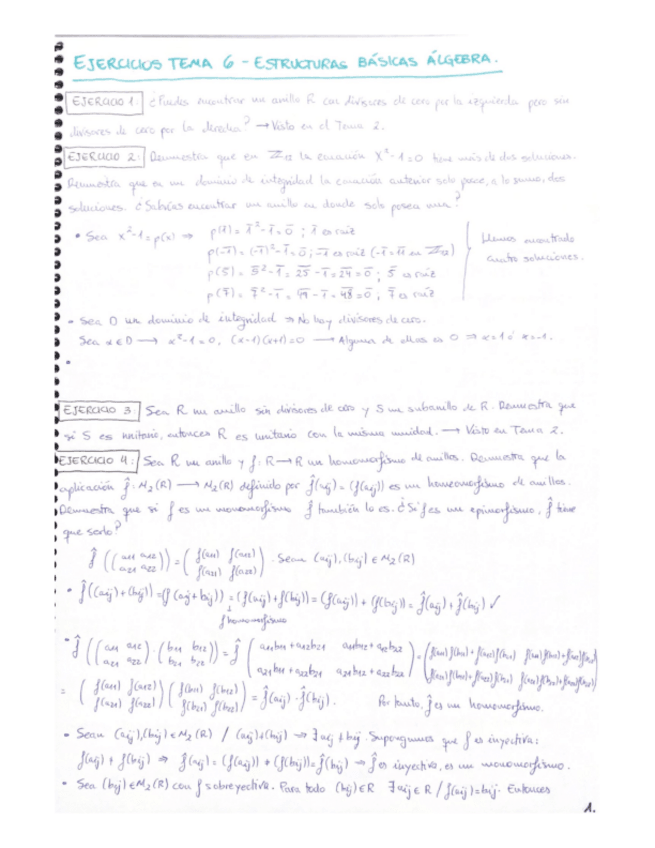 EJERCICIOS TEMA 6 - ESTRUCTURAS BÁSICAS ÁLGEBRA.
EJERCICIO 1: ¿Puedes encontrar un anillo R con divisores de cero por la izquierda pero sin
divisores de cero por la derecha? → Visto en el Tema 2.
EJERCICIO 2: Demuestra que en ℤ₁₂ la ecuación X²-1=0 tiene más de dos soluciones.
Demuestra que en un dominio de integridad la ecuación anterior solo posee, a lo sumo, dos
soluciones. ¿Sabrías encontrar un anillo en donde solo posea una?
• Sea x²-1=p(x) ⇒ p(1̄)=1̄²-1̄=0̄ ; 1̄ es raíz
p(-1̄)=(-1̄)²-1̄=0̄ ; -1̄ es raíz (-1̄=11̄ en ℤ₁₂)
p(5̄)=5̄²-1̄=25̄-1̄=24̄=0̄ ; 5̄ es raíz
p(7̄)=7̄²-1̄=49̄-1̄=48̄=0̄ ; 7̄ es raíz
Hemos encontrado
cuatro soluciones.
• Sea D un dominio de integridad ⇒ No hay divisores de cero.
Sea x∈D → x²-1=0, (x-1)(x+1)=0 → Alguno de ellos es 0 ⇒ x=1 ó x=-1.
•
EJERCICIO 3: Sea R un anillo sin divisores de cero y S un subanillo de R. Demuestra que
si S es unitario, entonces R es unitario con la misma unidad. → Visto en Tema 2.
EJERCICIO 4: Sea R un anillo y f: R→R un homomorfismo de anillos. Demuestra que la
aplicación f̂: M₂(R) → M₂(R) definido por f̂(aij) = (f(aij)) es un homeomorfismo de anillos.
Demuestra que si f es un monomorfismo f̂ también lo es. ¿Si f es un epimorfismo, f̂ tiene
que serlo?
f̂ ((a11 a12 / a21 a22)) = (f(a11) f(a12) / f(a21) f(a22)). Sean (aij),(bij) ∈ M₂(R)
• f̂((aij)+(bij)) = (f(aij+bij)) = (f(aij)+f(bij)) = (f(aij))+(f(bij)) = f̂(aij)+f̂(bij) ✓
↓
f homomorfismo
• f̂ ((a11 a12 / a21 a22)·(b11 b12 / b21 b22)) = f̂ (a11b11+a12b21 a11b12+a12b22 / a21b11+a22b21 a21b12+a22b22) = (f(a11)f(b11)+f(a12)f(b21) f(a11)f(b12)+f(a12)f(b22) / f(a21)f(b11)+f(a22)f(b21) f(a21)f(b12)+f(a22)f(b22))
= (f(a11) f(a12) / f(a21) f(a22)) (f(b11) f(b12) / f(b21) f(b22)) = f̂(aij)·f̂(bij). Por tanto, f̂ es un homomorfismo.
• Sean (aij),(bij) ∈ M₂(R) / (aij)≠(bij) ⇒ ∃ aij ≠ bij. Supongamos que f es inyectiva:
f(aij) ≠ f(bij) ⇒ f̂(aij) = (f(aij)) ≠ (f(bij)) = f̂(bij) → f̂ es inyectiva, es un monomorfismo.
• Sea (bij) ∈ M₂(R) con f sobreyectiva. Para todo (bij) ∈ R ∃ aij ∈ R / f(aij)=bij. Entonces
1.